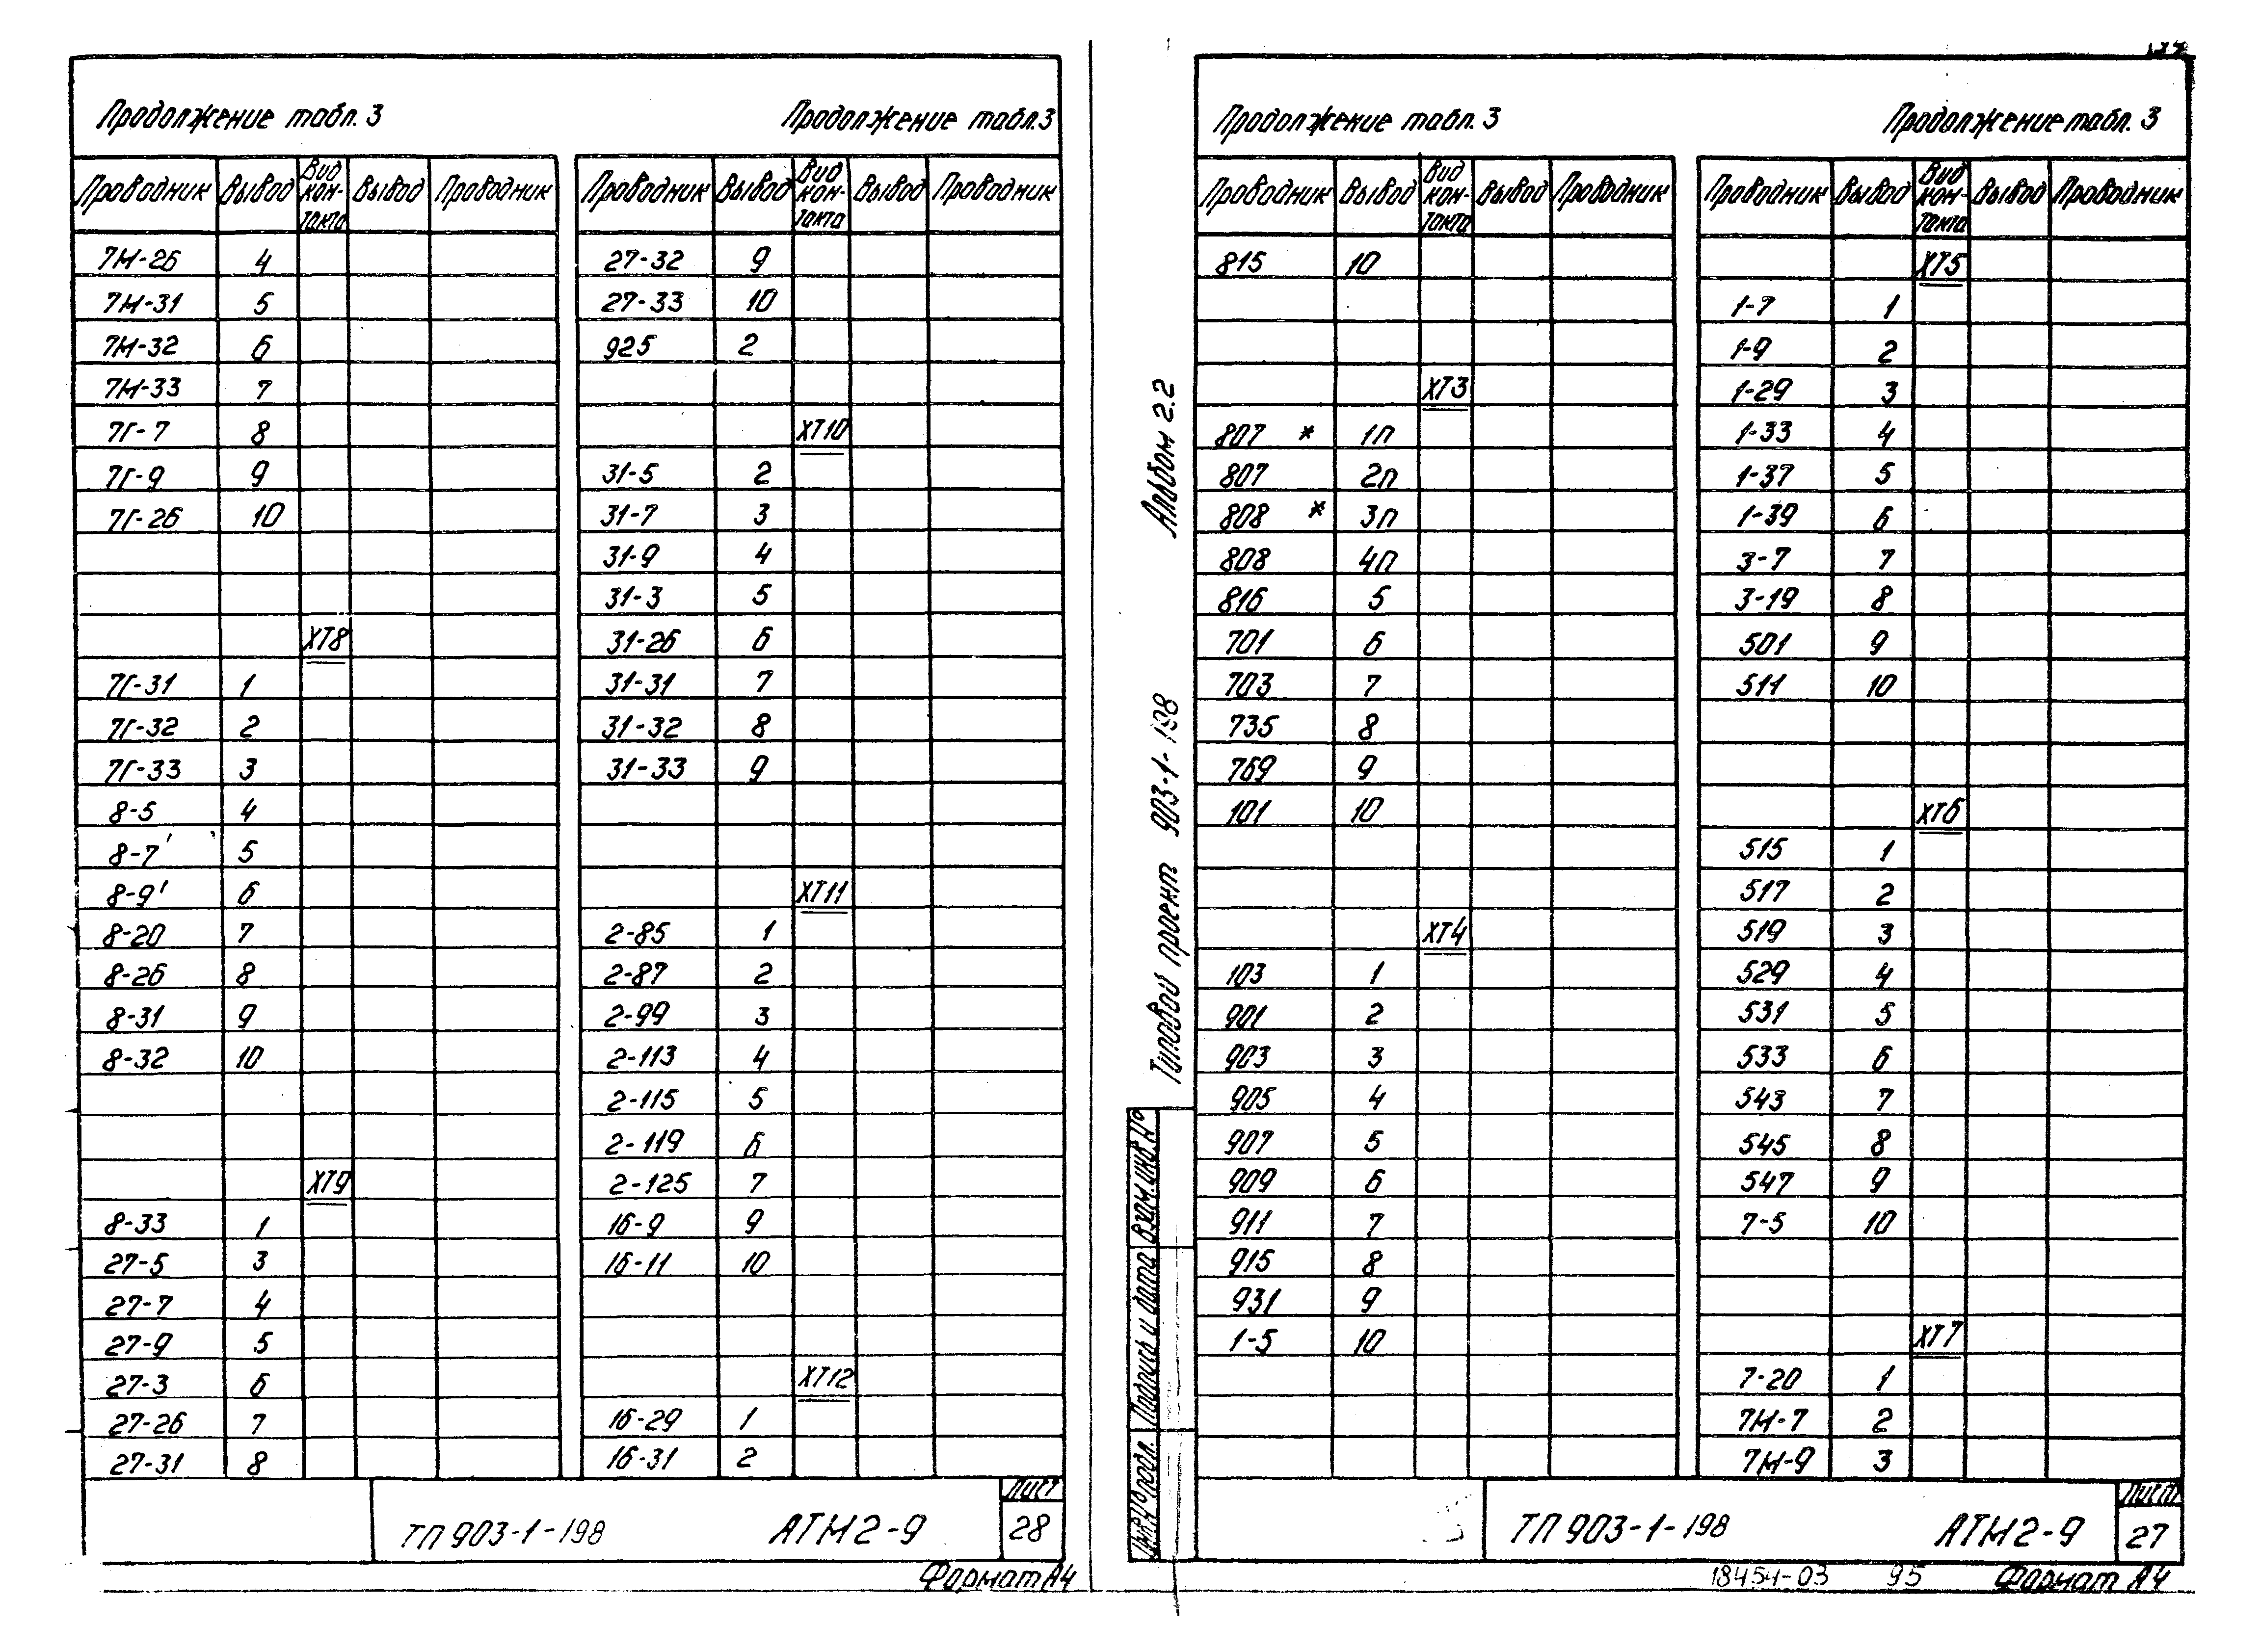 Продолжение табл. 3
Продолжение табл. 3
Проводник Вывод Вид кон- такта Вывод Проводник
7М-26 4
7М-31 5
7М-32 6
7М-33 7
7Г-7 8
7Г-9 9
7Г-26 10
ХТ8
7Г-31 1
7Г-32 2
7Г-33 3
8-5 4
8-7' 5
8-9' 6
8-20 7
8-26 8
8-31 9
8-32 10
ХТ9
8-33 1
27-5 3
27-7 4
27-9 5
27-3 6
27-26 7
27-31 8
Проводник Вывод Вид кон- такта Вывод Проводник
27-32 9
27-33 10
925 2
ХТ10
31-5 2
31-7 3
31-9 4
31-3 5
31-26 6
31-31 7
31-32 8
31-33 9
ХТ11
2-85 1
2-87 2
2-99 3
2-113 4
2-115 5
2-119 6
2-125 7
16-9 9
16-11 10
ХТ12
16-29 1
16-31 2
ТП 903-1-198 АТМ2-9 Лист 28
Формат А4
Альбом 2.2
Типовой проект 903-1-198
Взам.инв.№
Подпись и дата
Инв.№ подл.
Продолжение табл. 3
Продолжение табл. 3
Проводник Вывод Вид кон- такта Вывод Проводник
815 10
ХТ3
807 * 1п
807 2п
808 * 3п
808 4п
816 5
701 6
703 7
735 8
769 9
101 10
ХТ4
103 1
901 2
903 3
905 4
907 5
909 6
911 7
915 8
931 9
1-5 10
Проводник Вывод Вид кон- такта Вывод Проводник
ХТ5
1-7 1
1-9 2
1-29 3
1-33 4
1-37 5
1-39 6
3-7 7
3-19 8
501 9
511 10
ХТ6
515 1
517 2
519 3
529 4
531 5
533 6
543 7
545 8
547 9
7-5 10
ХТ7
7-20 1
7М-7 2
7М-9 3
ТП 903-1-198 АТМ2-9 Лист 27
18454-03 95 Формат А4